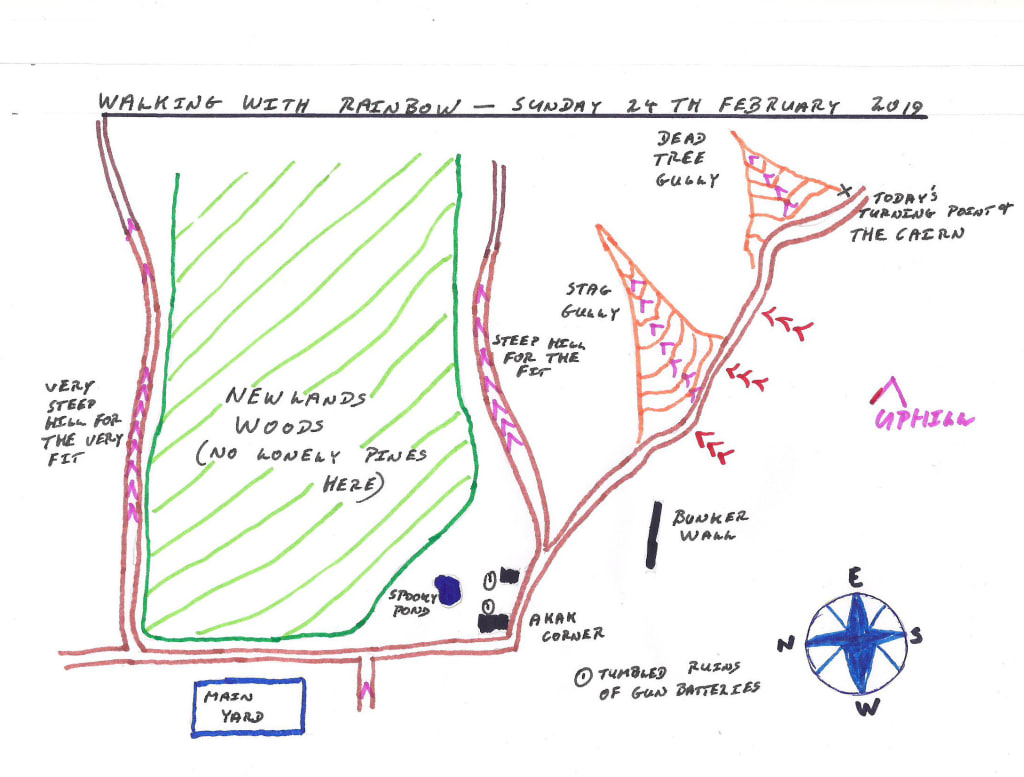 WALKING WITH RAINBOW — SUNDAY 24TH FEBRUARY 2019
DEAD
TREE
GULLY
X
TODAY'S
TURNING POINT &
THE CAIRN
STAG
GULLY
STEEP HILL
FOR THE
FIT
VERY
STEEP
HILL FOR
THE VERY
FIT
NEWLANDS
WOODS
(NO LONELY PINES
HERE)
UPHILL
BUNKER
WALL
SPOOKY
POND
1
1
AKAK
CORNER
1 TUMBLED RUINS
OF GUN BATTERIES
MAIN
YARD
E
N
S
W